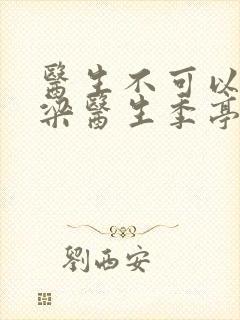 醫生不可以
梁醫生季亭
劉西安